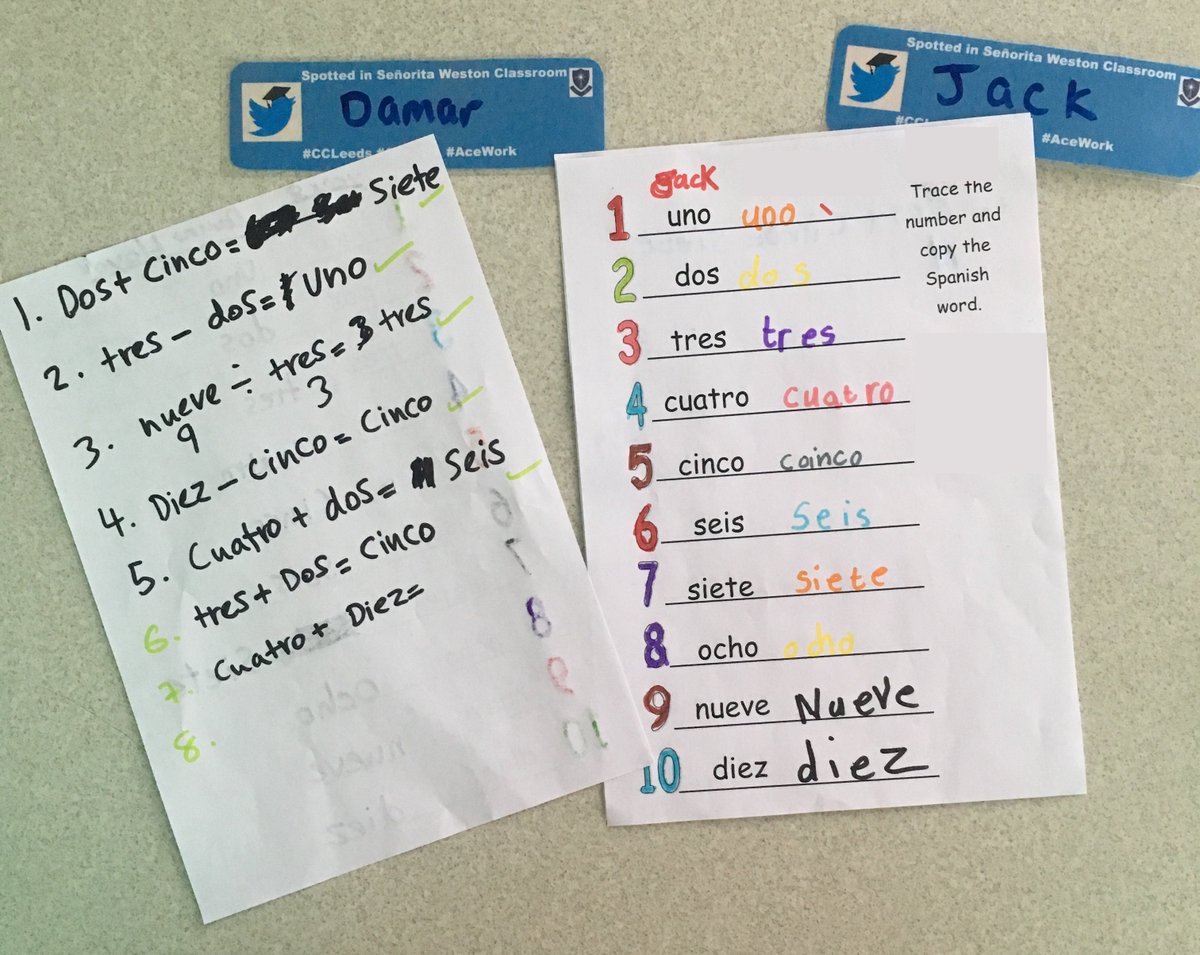 Spotted in Señorita Weston Classroom
Damar
#CCLeeds #AceWork
Spotted in Señorita Weston Classroom
Jack
#AceWork
1. Dos+ Cinco= Siete
2. tres - dos= Uno
3. nueve ÷ tres= 3 tres
9 3
4. Diez - cinco= Cinco
5. Cuatro + dos= Seis
6. tres+ Dos= Cinco
7. Cuatro+ Diez=
8.
Jack
1 uno uno
2 dos dos
3 tres tres
4 cuatro cuatro
5 cinco coinco
6 seis Seis
7 siete siete
8 ocho ocho
9 nueve Nueve
10 diez diez
Trace the
number and
copy the
Spanish
word.